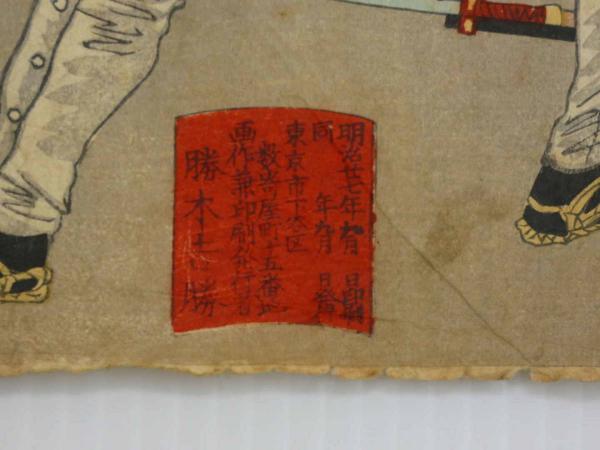 明治廿七年九月 日印刷
同 年九月 日発行
東京市下谷区
数寄屋町十五番地
画作兼印刷発行者
勝木吉勝